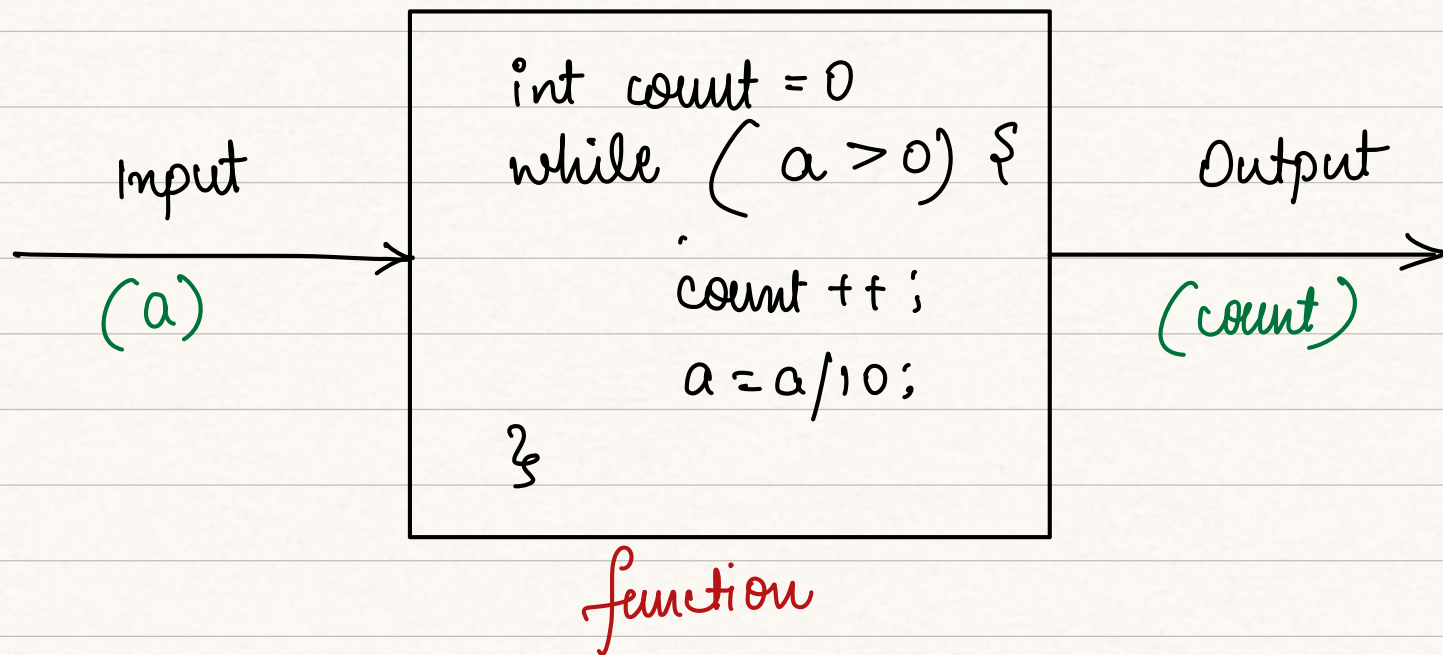 Input
(a)
int count = 0
while (a > 0) {
count ++;
a = a/10;
}
Output
(count)
function